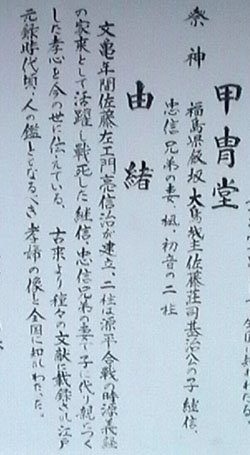 甲冑堂
祭神 福島県飯坂大鳥城主佐藤荘司基治公の子継信、
忠信兄弟の妻、楓、初音の二柱
由緒
文亀年間佐藤左エ門亮信治が建立、二柱は源平合戦の時源義経
の家来として活躍し戦死した継信・忠信兄弟の妻で子に代り親につく
した孝心を今の世に伝えている。古来より種々の文献に載録され江戸
元録時代頃、人の鑑ともなるべき孝婦の像と全国に知れわたった。